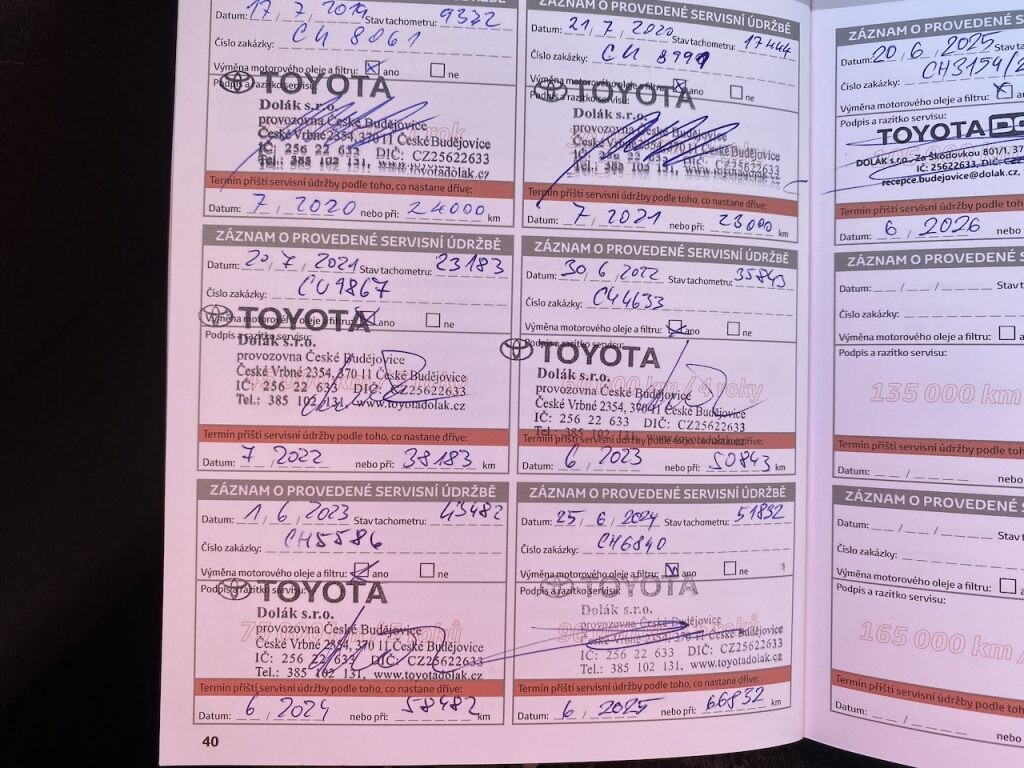 Datum: 17 / 7 / 2019 Stav tachometru: 9372
Číslo zakázky: CH 8061
Výměna motorového oleje a filtru: ☒ ano ☐ ne
Podpis a razítko servisu:
TOYOTA
Dolák s.r.o.
provozovna České Budějovice
České Vrbné 2354, 370 11 České Budějovice
IČ: 256 22 633 DIČ: CZ25622633
Tel.: 385 102 131, www.toyotadolak.cz
Termín příští servisní údržby podle toho, co nastane dříve:
Datum: 7 / 2020 nebo při: 24000 km
Datum: 21 / 7 / 2020 Stav tachometru: 17444
Číslo zakázky: CH
Výměna motorového oleje a filtru: ☒ ano ☐ ne
Podpis a razítko servisu:
TOYOTA
Dolák s.r.o.
provozovna České Budějovice
České Vrbné 2354, 370 11 České Budějovice
IČ: 256 22 633 DIČ: CZ25622633
Tel.: 385 102 131, www.toyotadolak.cz
Termín příští servisní údržby podle toho, co nastane dříve:
Datum: 7 / 2021 nebo při: 23000 km
ZÁZNAM O PROVEDENÉ SERVISNÍ ÚDRŽBĚ
Datum: 20 / 7 / 2021 Stav tachometru: 23183
Číslo zakázky: CH9867
Výměna motorového oleje a filtru: ☒ ano ☐ ne
Podpis a razítko servisu:
TOYOTA
Dolák s.r.o.
provozovna České Budějovice
České Vrbné 2354, 370 11 České Budějovice
IČ: 256 22 633 DIČ: CZ25622633
Tel.: 385 102 131, www.toyotadolak.cz
Termín příští servisní údržby podle toho, co nastane dříve:
Datum: 7 / 2022 nebo při: 38183 km
ZÁZNAM O PROVEDENÉ SERVISNÍ ÚDRŽBĚ
Datum: 30 / 6 / 2022 Stav tachometru: 35843
Číslo zakázky: CH4633
Výměna motorového oleje a filtru: ☒ ano ☐ ne
Podpis a razítko servisu:
TOYOTA
Dolák s.r.o.
km / 4 roky
provozovna České Budějovice
České Vrbné 2354, 370 11 České Budějovice
IČ: 256 22 633 DIČ: CZ25622633
Tel.: 385 102 131, www.toyotadolak.cz
Termín příští servisní údržby podle toho, co nastane dříve:
Datum: 6 / 2023 nebo při: 50843 km
ZÁZNAM O PROVEDENÉ SERVISNÍ ÚDRŽBĚ
Datum: 1 / 6 / 2023 Stav tachometru: 43482
Číslo zakázky: CH5586
Výměna motorového oleje a filtru: ☒ ano ☐ ne
Podpis a razítko servisu:
TOYOTA
Dolák s.r.o.
provozovna České Budějovice
České Vrbné 2354, 370 11 České Budějovice
IČ: 256 22 633 DIČ: CZ25622633
Tel.: 385 102 131, www.toyotadolak.cz
Termín příští servisní údržby podle toho, co nastane dříve:
Datum: 6 / 2024 nebo při: 58482 km
ZÁZNAM O PROVEDENÉ SERVISNÍ ÚDRŽBĚ
Datum: 25 / 6 / 2024 Stav tachometru: 51832
Číslo zakázky: CH6840
Výměna motorového oleje a filtru: ☒ ano ☐ ne
Podpis a razítko servisu:
TOYOTA
Dolák s.r.o.
provozovna České Budějovice
České Vrbné 2354, 370 11 České Budějovice
IČ: 256 22 633 DIČ: CZ25622633
Tel.: 385 102 131, www.toyotadolak.cz
Termín příští servisní údržby podle toho, co nastane dříve:
Datum: 6 / 2025 nebo při: 66832 km
40
ZÁZNAM O PROVEDENÉ S
Datum: 20 / 6 / 2025 Stav t
Číslo zakázky: CH3154/2
Výměna motorového oleje a filtru: ☒ a
Podpis a razítko servisu:
TOYOTA
DOLÁK s.r.o., Za Škodovkou 801/1, 37
IČ: 25622633, DIČ: CZ
recepce.budejovice@dolak.cz,
Termín příští servisní údržby podle toh
Datum: 6 / 2026 nebo
ZÁZNAM O PROVEDENÉ S
Datum: Stav t
Číslo zakázky:
Výměna motorového oleje a filtru: ☐
Podpis a razítko servisu:
135 000 km /
Termín příští servisní údržby podle toho
Datum: nebo
ZÁZNAM O PROVEDENÉ S
Datum: Stav t
Číslo zakázky:
Výměna motorového oleje a filtru: ☐ a
Podpis a razítko servisu:
165 000 km /
Termín příští servisní údržby podle toho
Datum: nebo